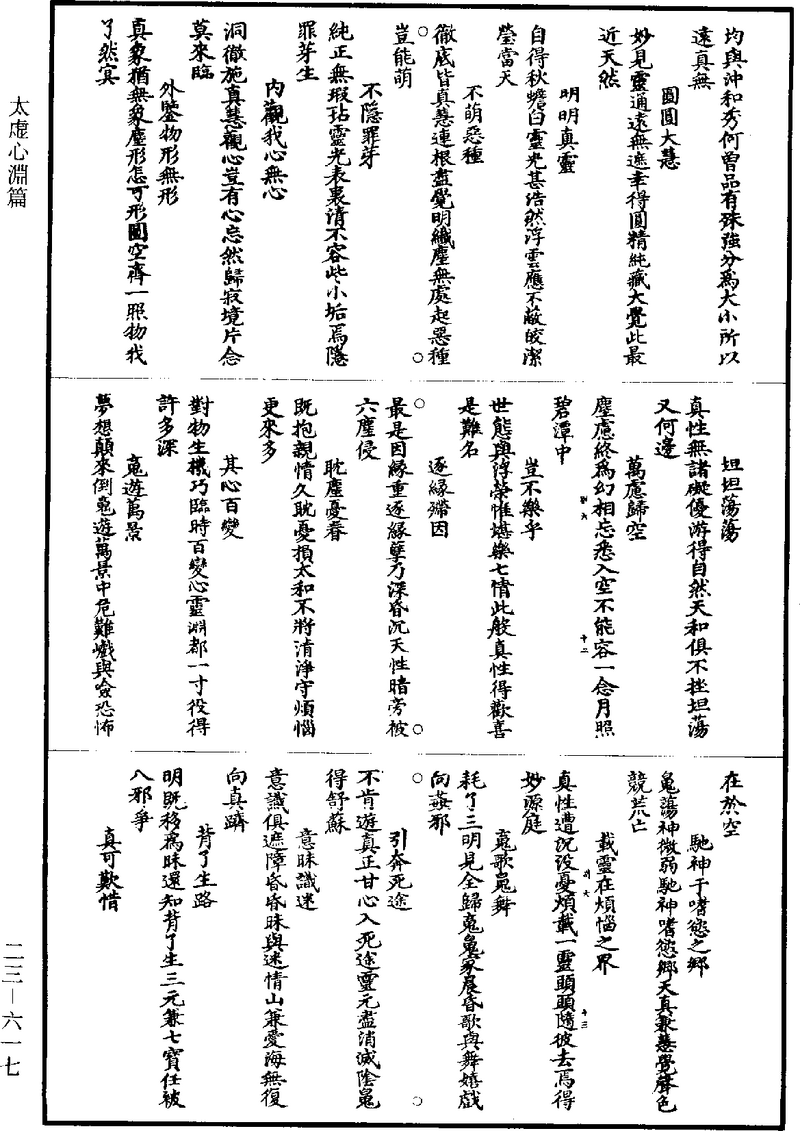 太虛心淵篇
二三—六一七
均與沖和秀何曾品有殊強分爲大小所以
遠真無
圓圓大慧
妙見靈通遠無遮幸得圓精純藏大覺此最
近天然
明明真靈
自得秋蟾白靈光甚浩然浮雲應不蔽皎潔
瑩當天
不萌惡種
徹底皆真慧連根盡覺明纖塵無處起惡種
豈能萌
不隱罪芽
純正無瑕玷靈光表裏清不容些小垢焉隱
罪芽生
內觀我心無心
洞徹施真慧觀心豈有心忘然歸寂境片念
莫來臨
外鑒物形無形
真象猶無象塵形怎可形圖空齊一照物我
了然㝠
坦坦蕩蕩
真性無諸礙優游得自然天和俱不挫坦蕩
又何邊
萬慮歸空
塵慮終爲幻相忘悉入空不能容一念月照
碧潭中
豈不樂乎
世態與浮榮惟堪樂七情此般真性得歡喜
是難名
逐緣滯因
最是因緣重逐緣孽乃深昏沉天性暗旁被
六塵侵
耽塵憂眷
既抱親情久耽憂損太和不將清淨守煩惱
更來多
其心百變
對物生機巧臨時百變心靈淵都一寸役得
許多深
䰟遊萬景
夢想顛來倒䰟遊萬景中危難嬉與險恐怖
在於空
馳神于嗜慾之鄉
䰟蕩神微弱馳神嗜慾鄉天真兼慧覺聲色
競荒亡
載靈在煩惱之界
真性遭沉没憂煩載一靈頭頭隨彼去焉得
妙源庭
䰟歌䰟舞
耗了三明見全歸䰟䰟家晨昏歌與舞嬉戲
向姦邪
引奔死途
不肯遊真正甘心入死途靈元盡消滅陰䰟
得舒蘇
意昧識迷
意識俱遮障昏昏昧與迷情山兼愛海無復
向真躋
背了生路
明既移爲昧還知背了生三元兼七寶任被
八邪爭
真可歎惜